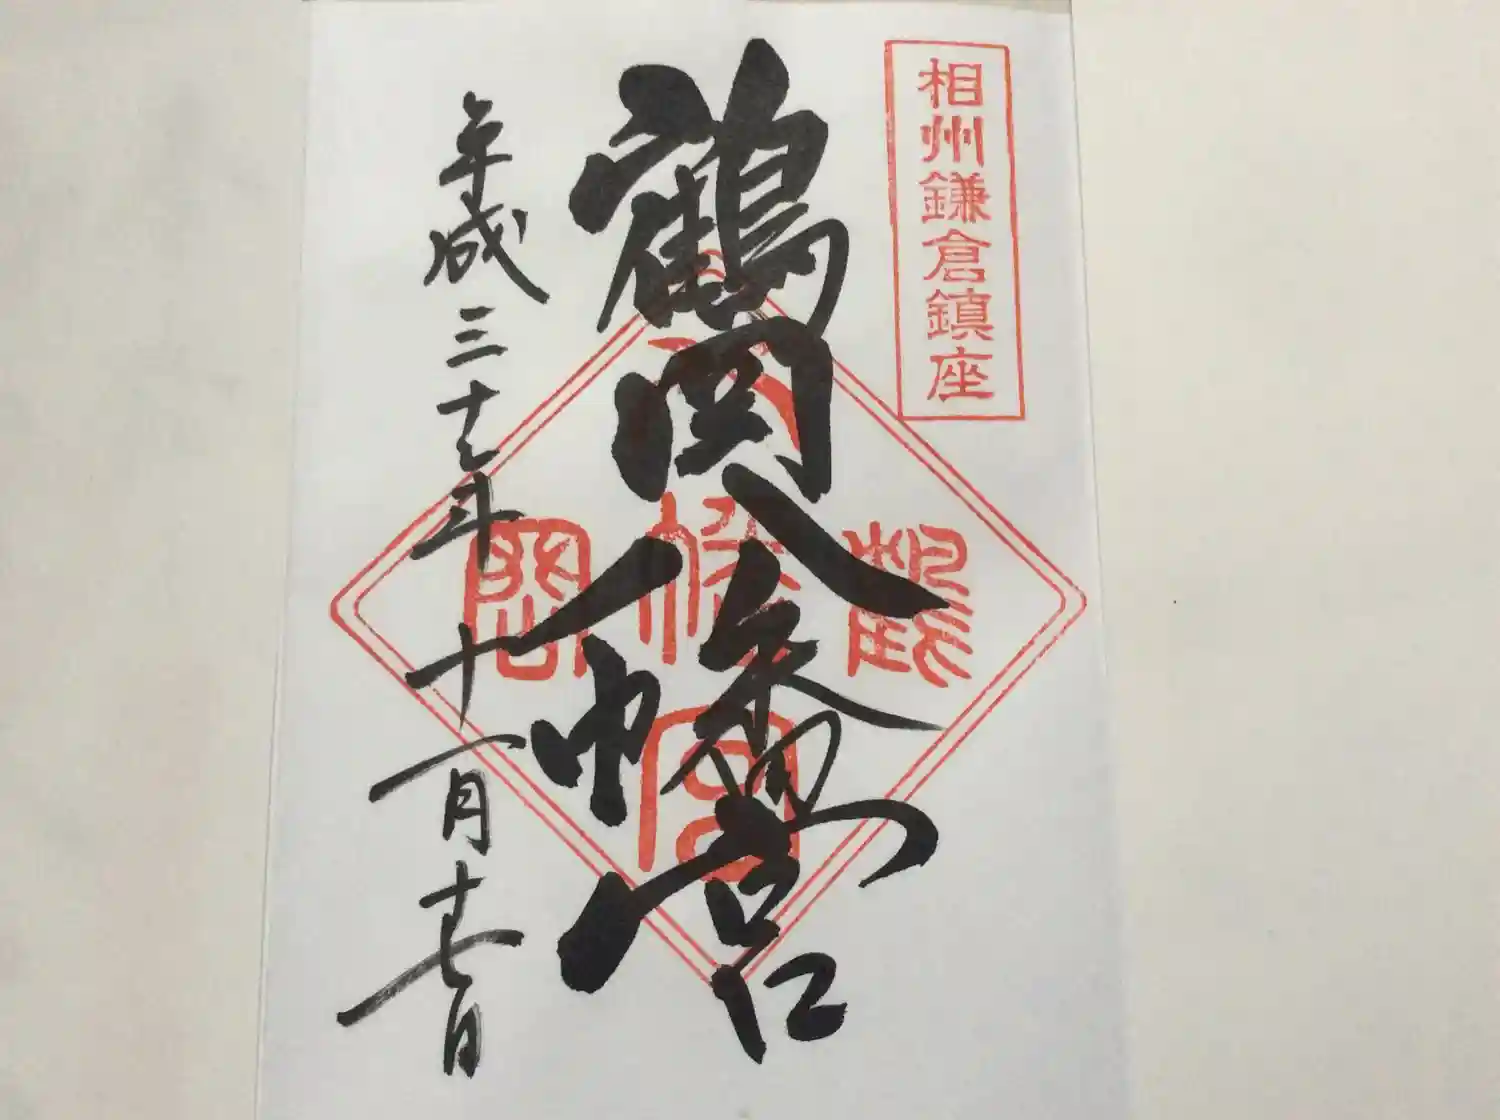 相州鎌倉鎮座
鶴岡八幡宮
平成三十年十一月十七日
鶴岡八幡宮